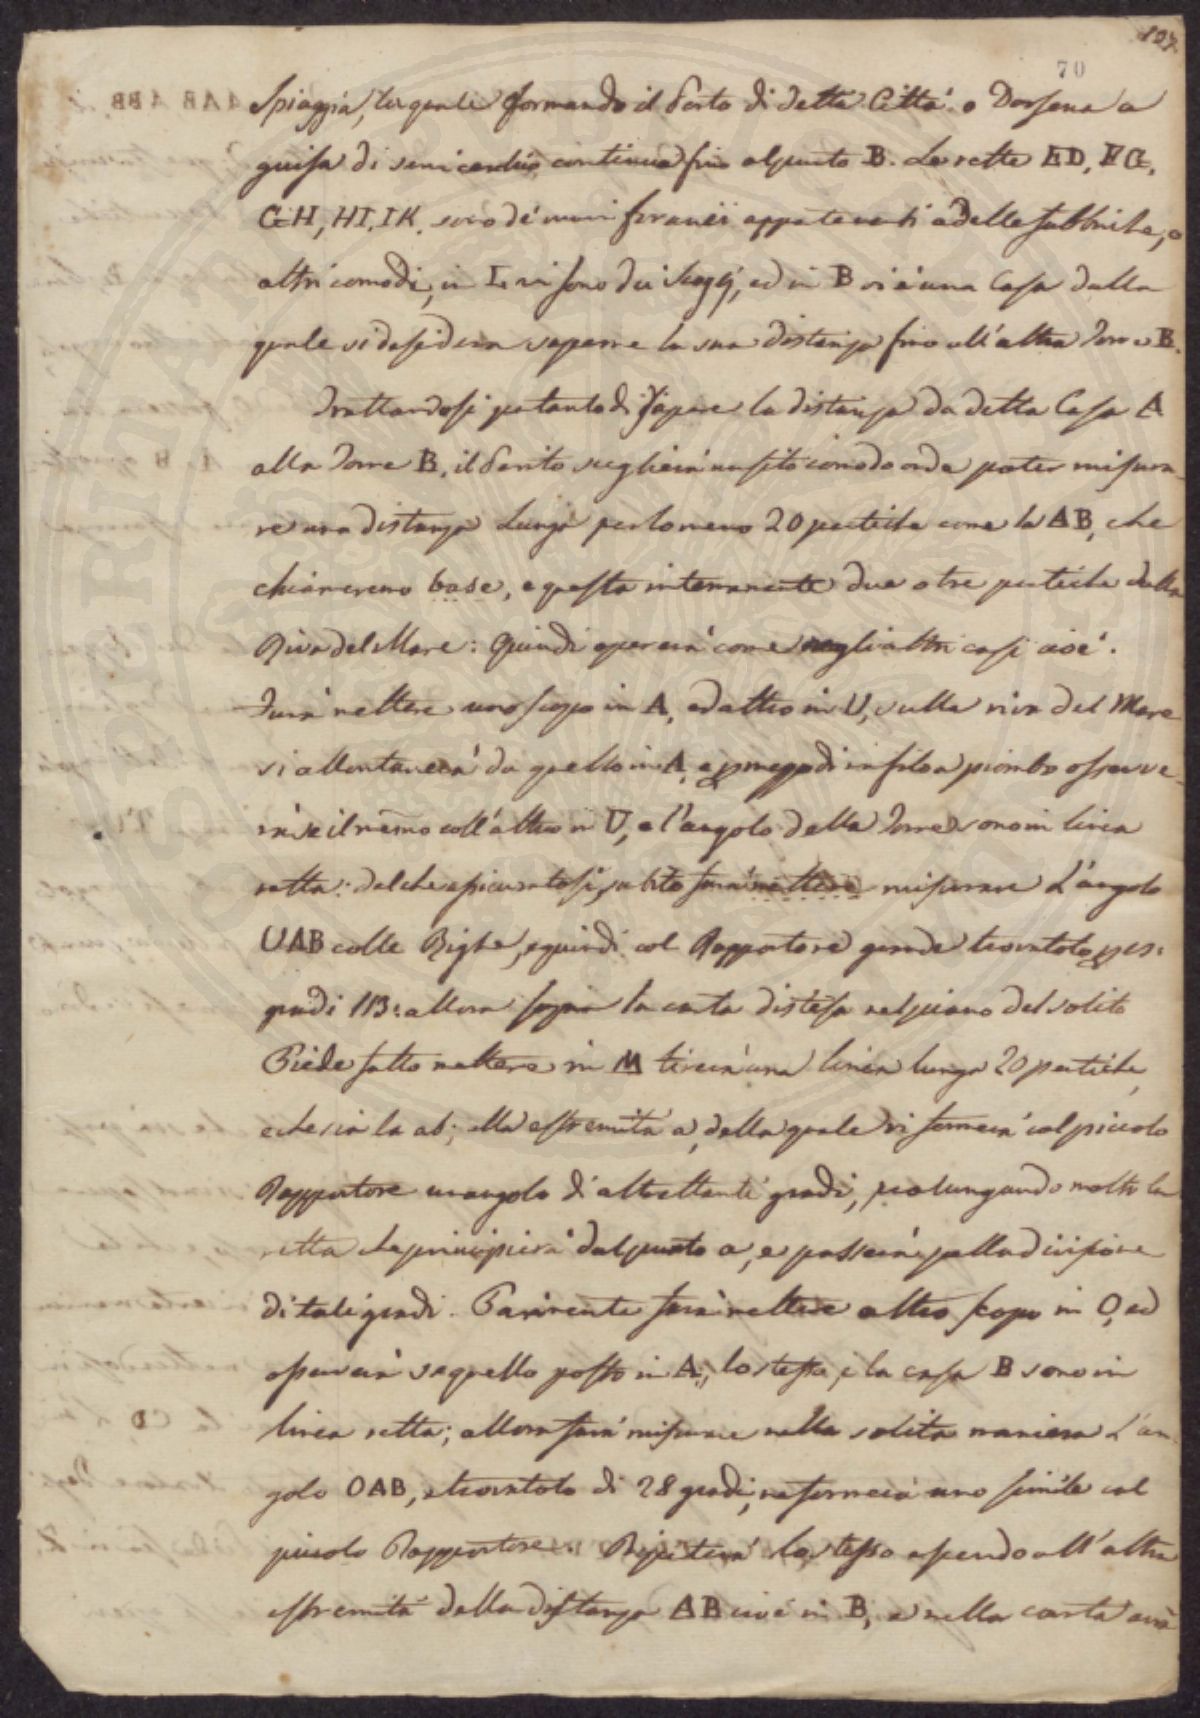 107.
70
Spiaggia, la quale formando il Porto di detta Città o Darsena a
guisa di semicerchio continua fino al punto B. Le rette ED, FG,
GH, HI, IK. sono de' muri foranei appartenenti a delle fabbriche, o
altri comodi, in L vi sono dei scogli, ed in B vi è una Casa dalla
quale si desidera sapere la sua distanza fino all'altra Torre B.
Trattandosi pertanto di sapere la distanza da detta Casa A
alla Torre B, il Perito sceglierà un sito comodo onde poter misura-
re una distanza lunga perlomeno 20 pertiche come la AB, che
chiameremo base, e questa internamente due o tre pertiche dalla
Riva del Mare: Quindi opererà come negli altri casi cioè.
Farà mettere uno scopo in A, ed altro in U, sulla riva del Mare
si allontanerà da quello in A, e p mezzo di un filo a piombo osserve-
rà se il medmo coll'altro in U, e l'angolo della Torre sono in linea
retta: del che assicuratosi, subito farà mettere misurare l'angolo
UAB colle Righe, e quindi col Rapportore grande trovatolo p es:
gradi 113: allora sopra la carta distesa nel piano del solito
Piede fatto mettere in M tirerà una linea lunga 20 pertiche,
che sia la ab; alla estremità a, della quale vi formerà col piccolo
Rapportore un angolo di altrettanti gradi, prolungando molto la
retta che principierà dal punto a, e passerà p la divisione
di tali gradi. Parimente farà mettere altro scopo in O, ed
osserverà se quello posto in A, lo stesso, e la casa B sono in
linea retta; allora farà misurare nella solita maniera l'an-
golo OAB, e trovatolo di 28 gradi, ne formerà uno simile col
piccolo Rapportore. Ripeterà lo stesso essendo all'altra
estremità della distanza AB cioè in B, e nella carta avrà